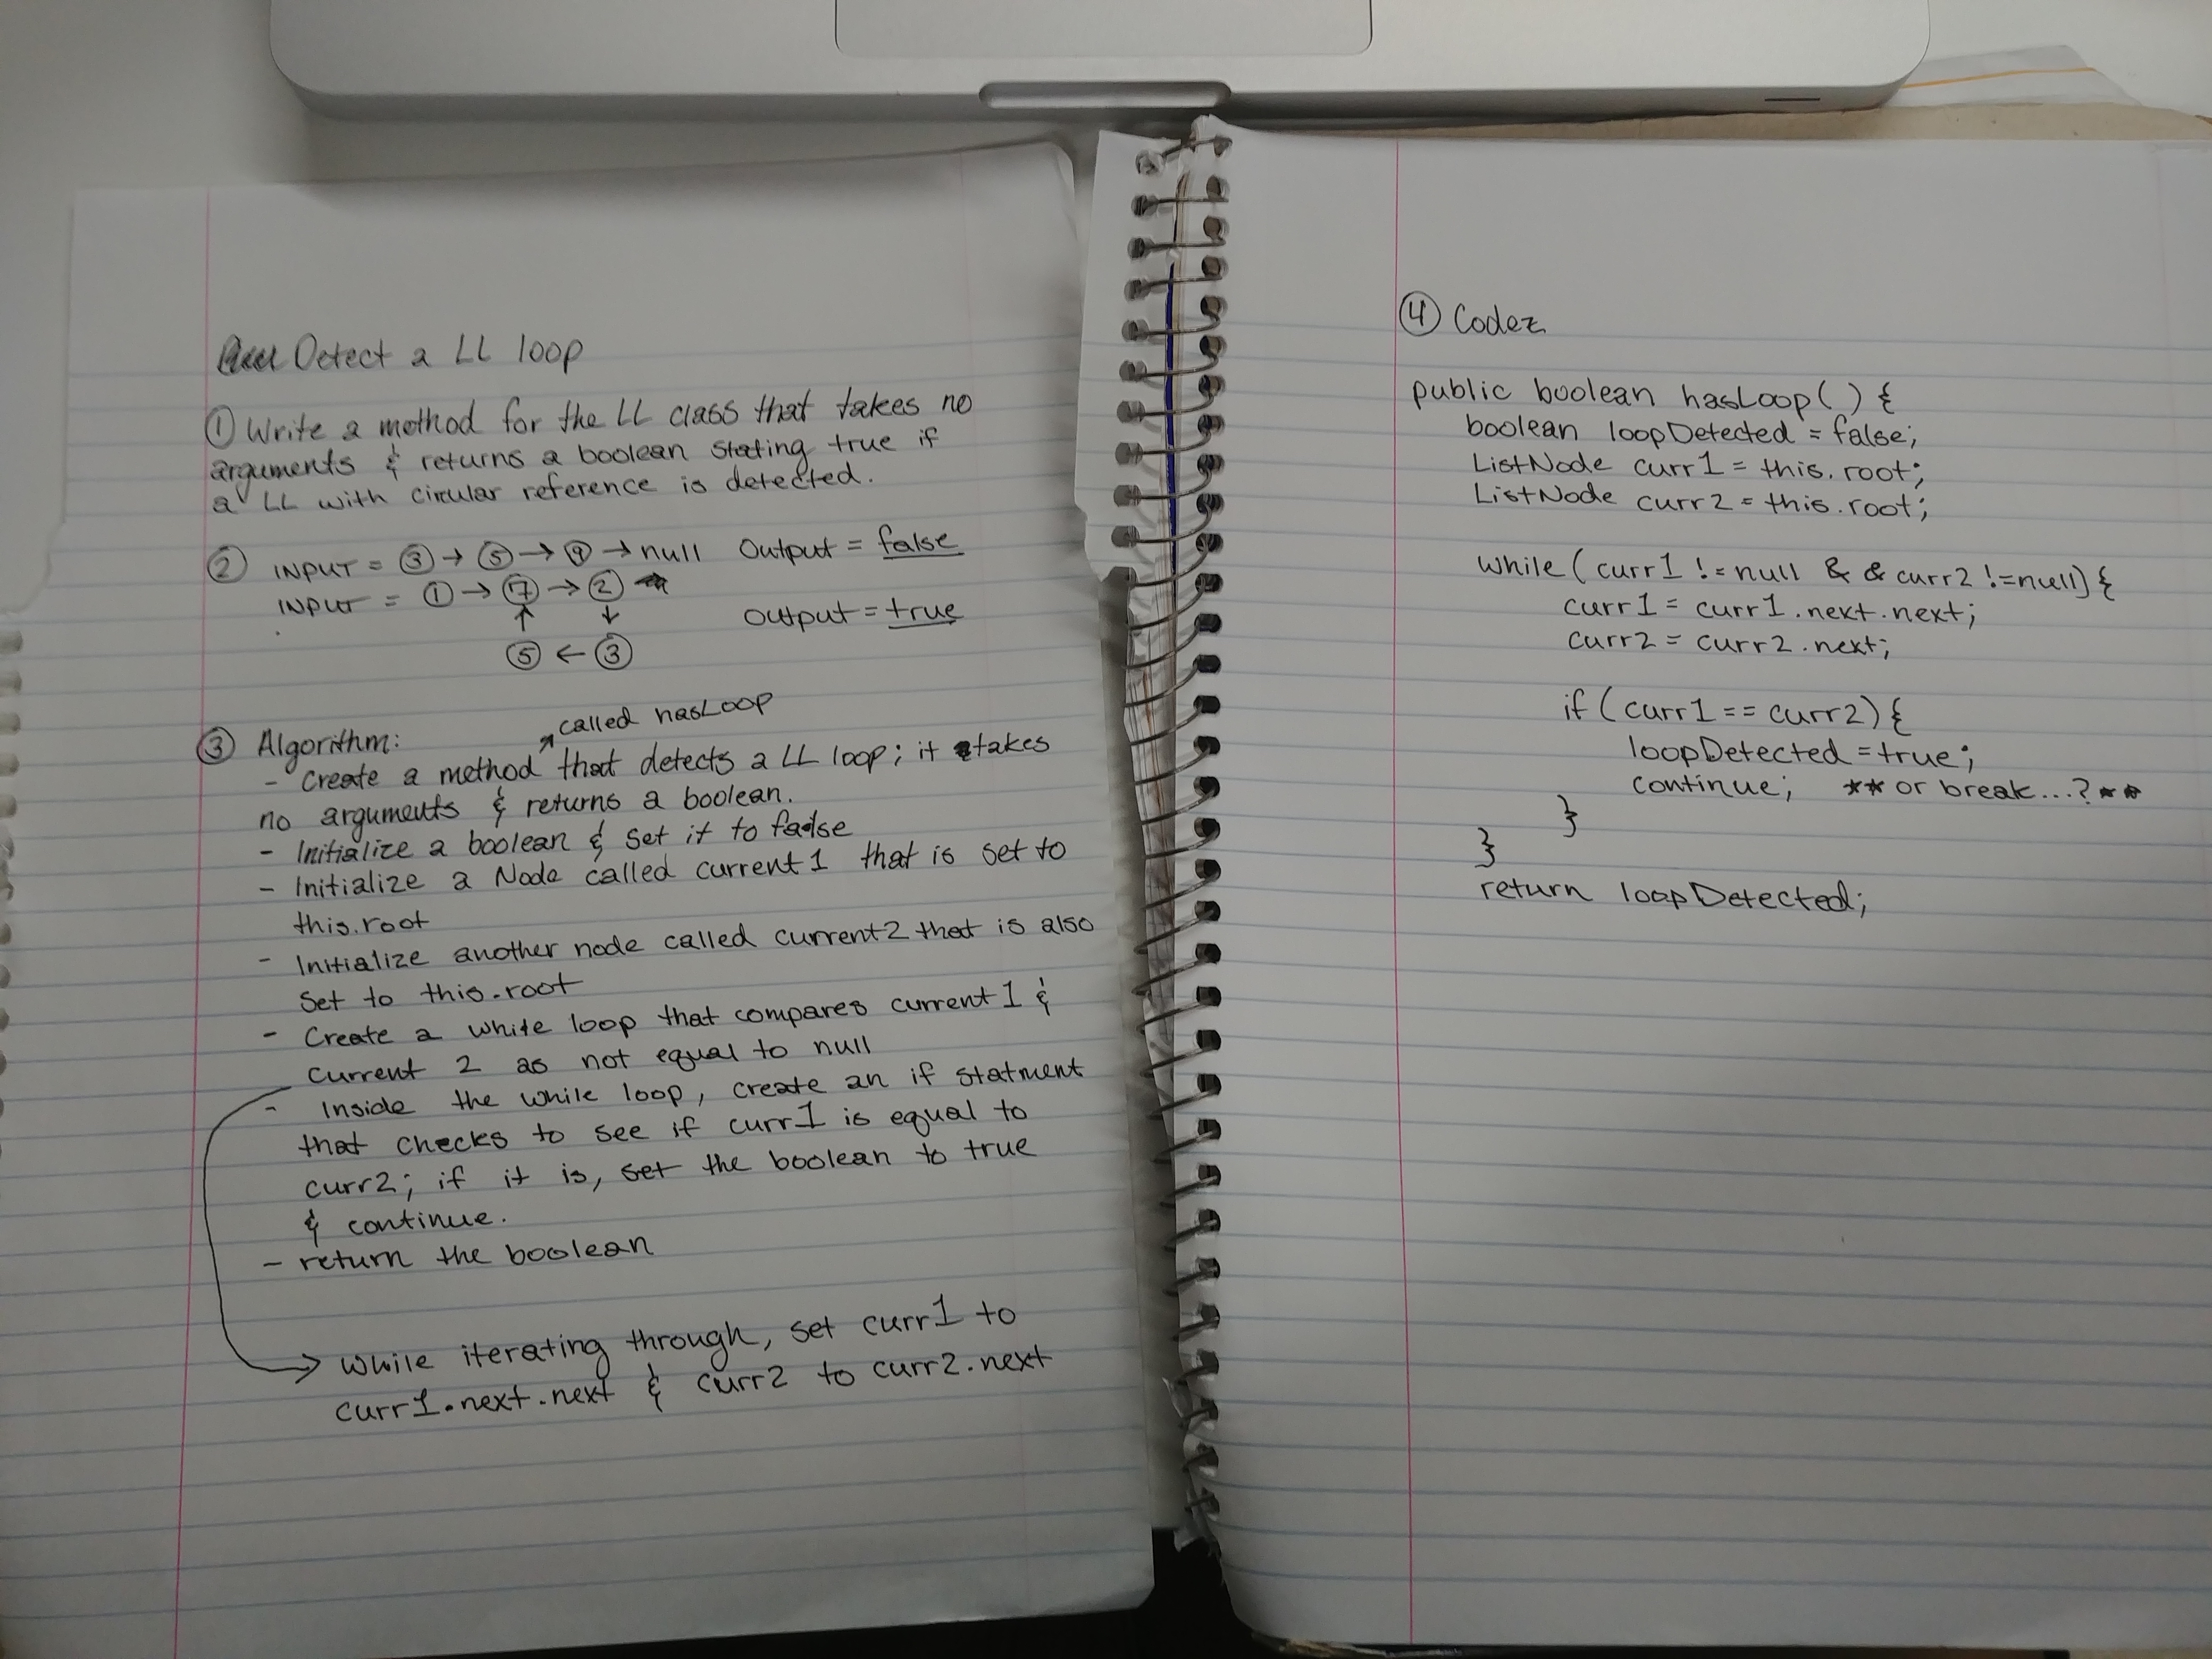 Detect a LL loop
① Write a method for the LL class that takes no
arguments & returns a boolean stating true if
a LL with circular reference is detected.
② INPUT = ③ → ⑤ → ⑨ → null Output = false
INPUT = ① → ⑦ → ②
↑ ↓ Output = true
⑤ ← ③
called hasLoop
③ Algorithm:
- Create a method that detects a LL loop; it takes
no arguments & returns a boolean.
- Initialize a boolean & set it to false
- Initialize a Node called current1 that is set to
this.root
- Initialize another node called current2 that is also
set to this.root
- Create a while loop that compares current1 &
current 2 as not equal to null
- Inside the while loop, create an if statment
that checks to see if curr1 is equal to
curr2; if it is, set the boolean to true
& continue.
- return the boolean
→ while iterating through, set curr1 to
curr1.next.next & curr2 to curr2.next
④ Codez
public boolean hasLoop() {
boolean loopDetected = false;
ListNode curr1 = this.root;
ListNode curr2 = this.root;
while (curr1 != null && curr2 != null) {
curr1 = curr1.next.next;
curr2 = curr2.next;
if (curr1 == curr2) {
loopDetected = true;
continue; ** or break...? **
}
}
return loopDetected;